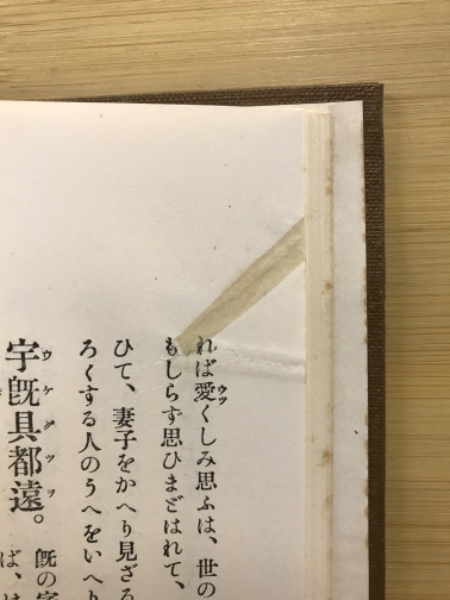 れば愛くしみ思ふは、世の
もしらず思ひまどはれて、
ひて、妻子をかへり見ざる
ろくする人のうへをいへり
宇既具都遠。
既の字
ば、は